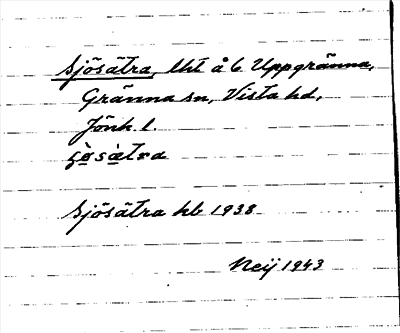 Sjösätra, lht å 6 Uppgränna,
Gränna sn, Vista hd,
Jönk. l.
Sjösätra hb 1938
Neij 1943